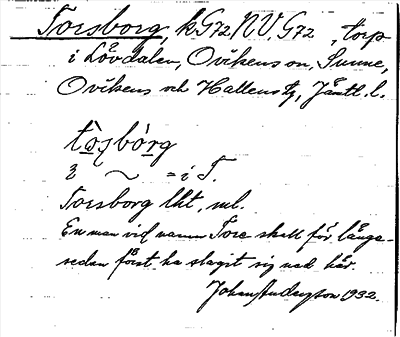 Torsborg, kG72NV, G72, torp
i Lövdalen, Ovikens sn, Sunne,
Ovikens och Hallens tg, Jämtl. l.
tò̩ʂbó̩rg
3 ~ = i T.
Torsborg lht, ml.
En man vid namn Tore skall för länge-
sedan först ha slagit sig ned här.
Johan Anderson 1932.